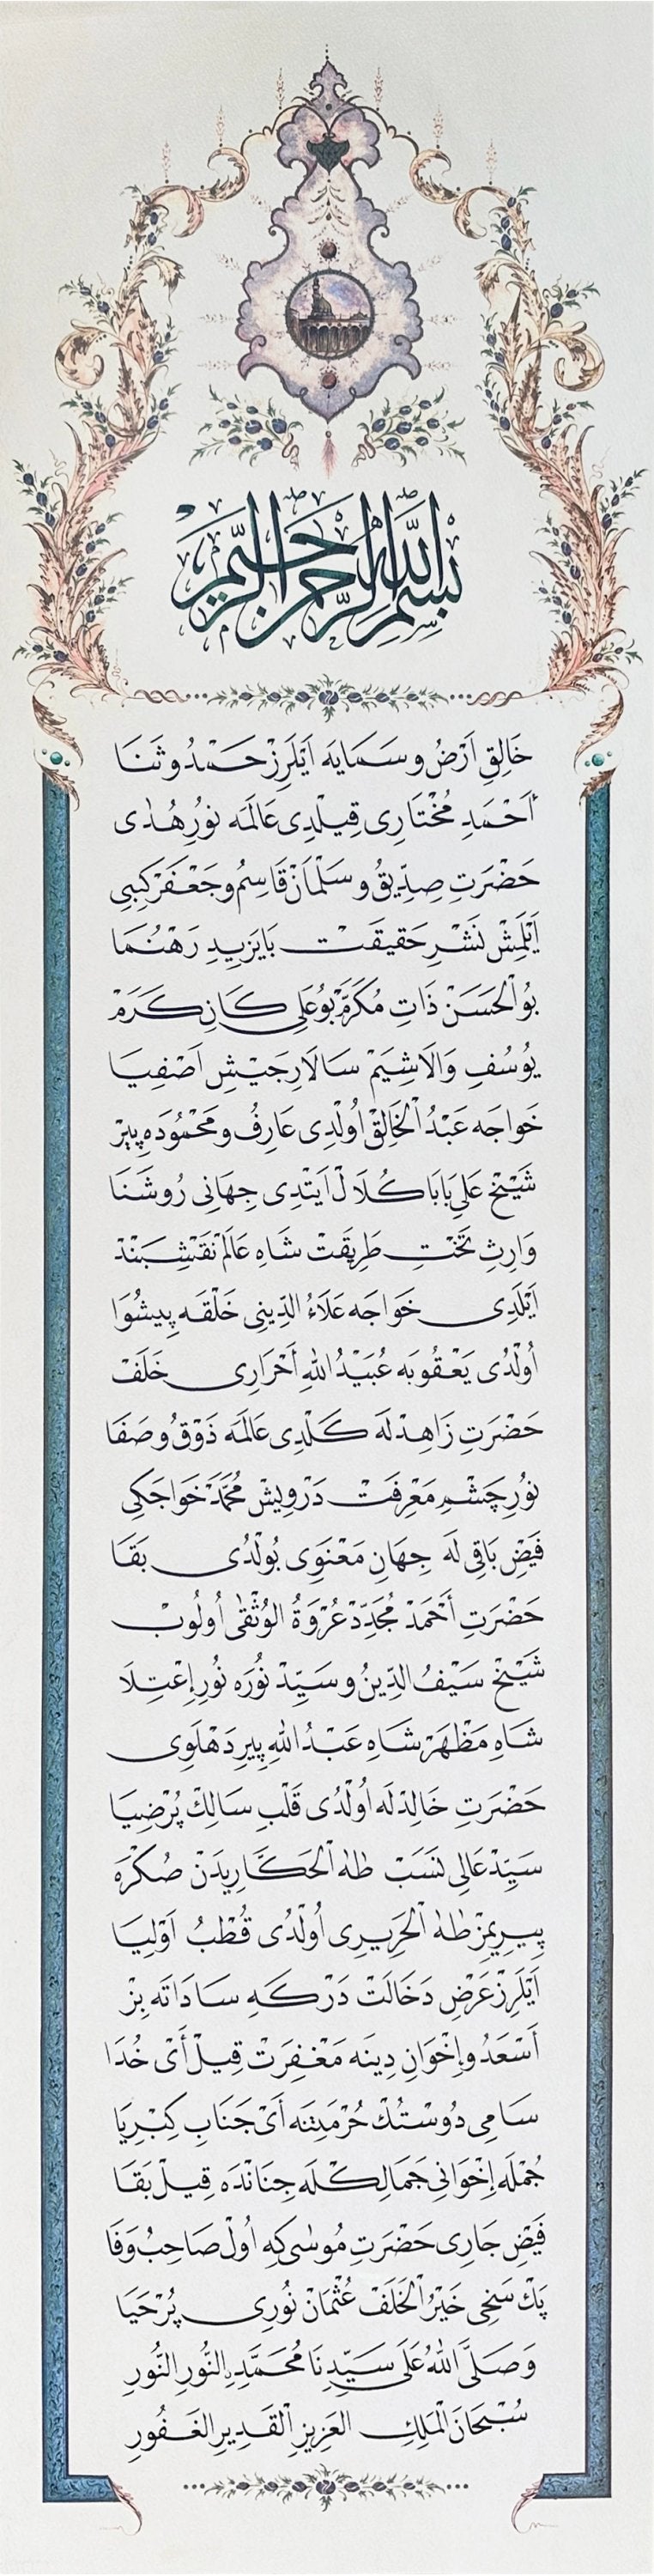 بِسْمِ اللّٰهِ الرَّحْمٰنِ الرَّحِيمِ
خَالِقِ اَرْضُ و سَمَايَه اَيْلَرِزْ حَمْدُ و ثَنَا
اَحْمَدِ مُخْتَارِى قِيلْدِى عَالَمَه نُورِ هُدٰى
حَضْرَتِ صِدِّيقُ و سَلْمَانْ قَاسِمُ و جَعْفَرْ كِبِى
اَيْلَمِشْ نَشْرِ حَقِيقَتْ بَايَزِيدِ رَهْنُمَا
بُو الْحَسَنْ ذَاتِ مُكَرَّمْ بُو عَلِى كَانِ كَرَمْ
يُوسُفِ وَالَاشِيَمْ سَالَارِ جَيْشِ اَصْفِيَا
خَواجَه عَبْدُ الْخَالِقْ اُولْدِى عَارِفُ و مَحْمُودَه پِيرْ
شَيْخْ عَلِى بَابَا كُلَالْ اَيْتْدِى جِهَانِى رُوشَنَا
وَارِثِ تَخْتِ طَرِيقَتْ شَاهِ عَالَمْ نَقْشِبَنْدْ
اَيْلَدِى خَواجَه عَلَاءُ الدِّينِى خَلْقَه پِيشُوَا
اُولْدُى يَعْقُوبَه عُبَيْدُ اللّٰهِ اَحْرَارِى خَلَفْ
حَضْرَتِ زَاهِدْ لَه كَلْدِى عَالَمَه ذَوْقُ و صَفَا
نُورِ چَشْمِ مَعْرِفَتْ دَرْوِيشْ مُحَمَّدْ خَواجَكِى
فَيْضِ بَاقِى لَه جِهَانِ مَعْنَوِى بُولْدُى بَقَا
حَضْرَتِ أَحْمَدْ مُجَدِّدْ عُرْوَةُ الوُثْقٰى اُولُوبْ
شَيْخْ سَيْفُ الدِّينُ و سَيِّدْ نُورَه نُورِ اِعْتِلَا
شَاهِ مَظْهَرْ شَاهِ عَبْدُ اللّٰهِ پِيرِ دَهْلَوِى
حَضْرَتِ خَالِدْ لَه اُولْدُى قَلْبِ سَالِكْ پُرْضِيَا
سَيِّدْ عَالِى نَسَبْ طٰهٰ الْحَكَّارِيدَنْ صُكْرَه
پِيرِيمِزْ طٰهٰ الْحَرِيرِى اُولْدُى قُطْبُ اَوْلِيَا
اَيْلَرِزْ عَرْضِ دَخَالَتْ دَرْكَهِ سَادَاتَه بِزْ
أَسْعَدُ و إِخْوَانِ دِينَه مَغْفِرَتْ قِيلْ أَىْ خُدَا
سَامِى دُوسْتُكْ حُرْمَتِنَه أَىْ جَنَابِ كِبْرِيَا
جُمْلَه إِخْوَانِى جَمَالِكْلَه جِنَانْدَه قِيلْ بَقَا
فَيْضِ جَارِى حَضْرَتِ مُوسٰى كِه اُولْ صَاحِبْ وَفَا
پَكْ سَخِى خَيْرُ الْخَلَفْ عُثْمَانْ نُورِى پُرْحَيَا
وَصَلَّى اللّٰهُ عَلَى سَيِّدِنَا مُحَمَّدٍ النُّورِ النُّورِ
سُبْحَانَ الْمَلِكِ العَزِيزِ الْقَدِيرِ الغَفُورِ